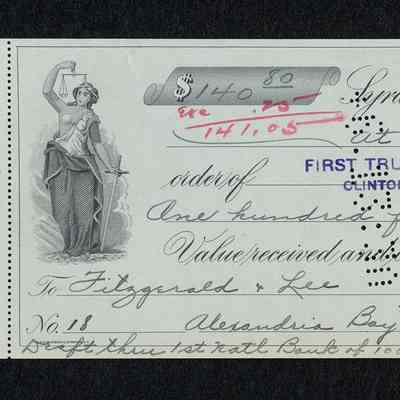 $ 140 80 Syra
Exc .25
141.05 at
FIRST TRU
order of CLINTO
One hundred f
Value received and
To Fitzgerald & Lee
No. 18 Alexandria Bay
Draft thru 1st Natl Bank of